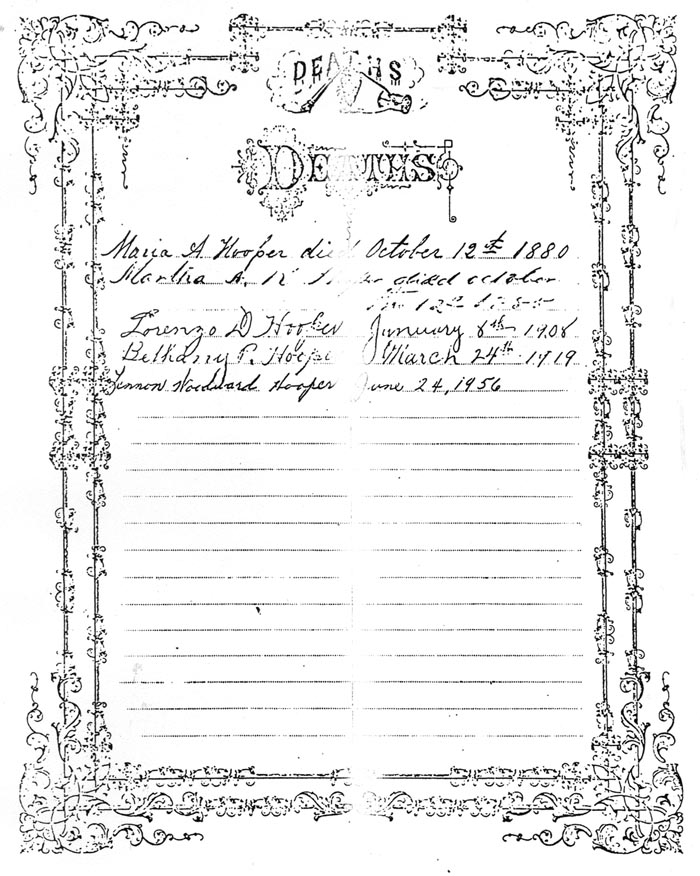 DEATHS
DEATHS
Maria A Hooper died October 12th 1880
Martha A. died october
the 12th
Lorenzo D Hooper January 8th 1908
Bethany P. Hooper March 24th 1919
Lennon Woodward Hooper June 24, 1956